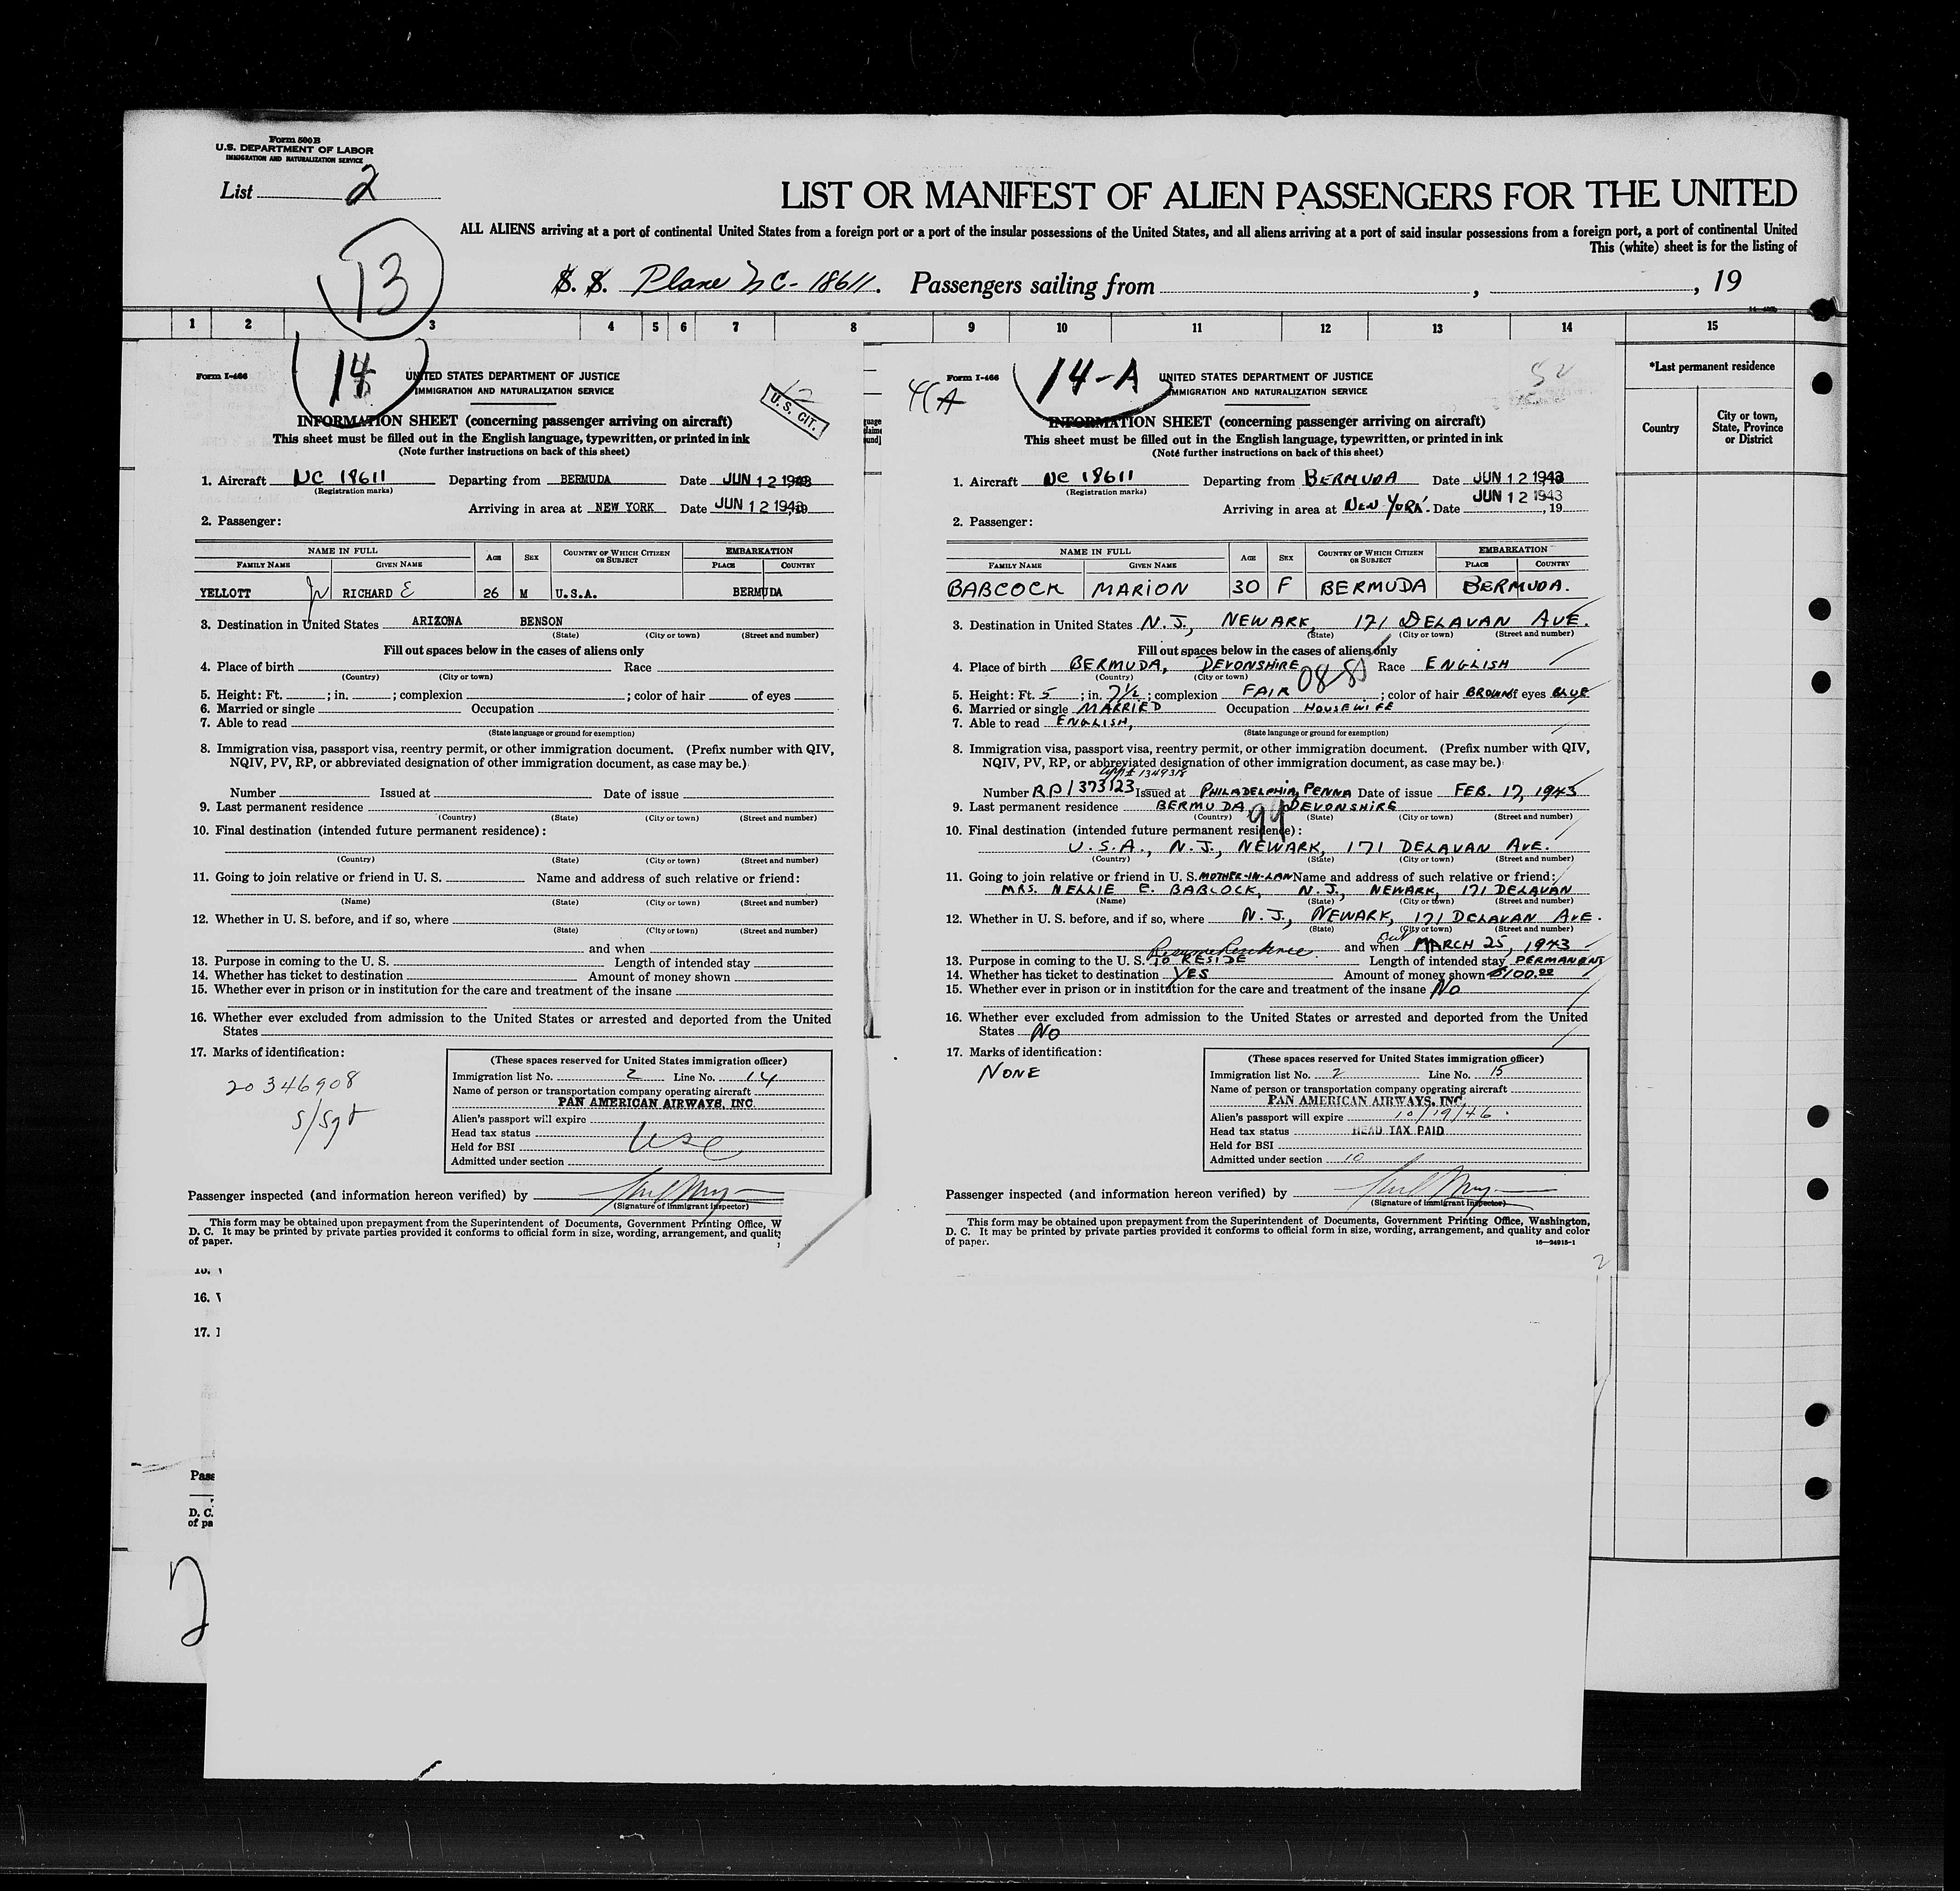 Form 500 B
U.S. DEPARTMENT OF LABOR
IMMIGRATION AND NATURALIZATION SERVICE
List 2
LIST OR MANIFEST OF ALIEN PASSENGERS FOR THE UNITED
ALL ALIENS arriving at a port of continental United States from a foreign port or a port of the insular possessions of the United States, and all aliens arriving at a port of said insular possessions from a foreign port, a port of continental United
This (white) sheet is for the listing of
13
S. S. Plane NC-18611. Passengers sailing from , , 19
1 2 3 4 5 6 7 8 9 10 11 12 13 14 15
*Last permanent residence
Country
City or town, State, Province or District
Form I-466
14
UNITED STATES DEPARTMENT OF JUSTICE
IMMIGRATION AND NATURALIZATION SERVICE
U. S. CIT.
INFORMATION SHEET (concerning passenger arriving on aircraft)
This sheet must be filled out in the English language, typewritten, or printed in ink
(Note further instructions on back of this sheet)
1. Aircraft NC 18611 Departing from BERMUDA Date JUN 12 1943
(Registration marks)
Arriving in area at NEW YORK Date JUN 12 1943
2. Passenger:
NAME IN FULL AGE SEX COUNTRY OF WHICH CITIZEN OR SUBJECT EMBARKATION
FAMILY NAME GIVEN NAME PLACE COUNTRY
YELLOTT Jr RICHARD E 26 M U.S.A. BERMUDA
3. Destination in United States ARIZONA BENSON
(State) (City or town) (Street and number)
Fill out spaces below in the cases of aliens only
4. Place of birth Race
(Country) (City or town)
5. Height: Ft. ; in. ; complexion ; color of hair of eyes
6. Married or single Occupation
7. Able to read
(State language or ground for exemption)
8. Immigration visa, passport visa, reentry permit, or other immigration document. (Prefix number with QIV,
NQIV, PV, RP, or abbreviated designation of other immigration document, as case may be.)
Number Issued at Date of issue
9. Last permanent residence
(Country) (State) (City or town) (Street and number)
10. Final destination (intended future permanent residence):
(Country) (State) (City or town) (Street and number)
11. Going to join relative or friend in U. S. Name and address of such relative or friend:
(Name) (State) (City or town) (Street and number)
12. Whether in U. S. before, and if so, where
(State) (City or town) (Street and number)
and when
13. Purpose in coming to the U. S. Length of intended stay
14. Whether has ticket to destination Amount of money shown
15. Whether ever in prison or in institution for the care and treatment of the insane
16. Whether ever excluded from admission to the United States or arrested and deported from the United
States
17. Marks of identification:
20346908
S/Sgt
(These spaces reserved for United States immigration officer)
Immigration list No. 2 Line No. 14
Name of person or transportation company operating aircraft
PAN AMERICAN AIRWAYS, INC.
Alien's passport will expire
Head tax status
USC
Held for BSI
Admitted under section
Passenger inspected (and information hereon verified) by
(Signature of immigrant inspector)
This form may be obtained upon prepayment from the Superintendent of Documents, Government Printing Office, W
D. C. It may be printed by private parties provided it conforms to official form in size, wording, arrangement, and quality
of paper.
16.
17.
Pass
D. C.
of pa
2
Form I-466
14-A
UNITED STATES DEPARTMENT OF JUSTICE
IMMIGRATION AND NATURALIZATION SERVICE
52
INFORMATION SHEET (concerning passenger arriving on aircraft)
This sheet must be filled out in the English language, typewritten, or printed in ink
(Note further instructions on back of this sheet)
1. Aircraft NC 18611 Departing from BERMUDA Date JUN 12 1943
(Registration marks)
JUN 12 1943
Arriving in area at NEW YORK. Date , 19
2. Passenger:
NAME IN FULL AGE SEX COUNTRY OF WHICH CITIZEN OR SUBJECT EMBARKATION
FAMILY NAME GIVEN NAME PLACE COUNTRY
BABCOCK MARION 30 F BERMUDA BERMUDA.
3. Destination in United States N.J., NEWARK, 171 DELAVAN AVE.
(State) (City or town) (Street and number)
Fill out spaces below in the cases of aliens only
4. Place of birth BERMUDA, DEVONSHIRE Race ENGLISH
(Country) (City or town)
5. Height: Ft. 5 ; in. 7½ ; complexion FAIR ; color of hair BROWN of eyes BLUE
6. Married or single MARRIED Occupation HOUSEWIFE
7. Able to read ENGLISH,
(State language or ground for exemption)
8. Immigration visa, passport visa, reentry permit, or other immigration document. (Prefix number with QIV,
NQIV, PV, RP, or abbreviated designation of other immigration document, as case may be.)
Number RP1373123 Issued at PHILADELPHIA, PENNA Date of issue FEB. 17, 1943
9. Last permanent residence BERMUDA DEVONSHIRE
99
(Country) (State) (City or town) (Street and number)
10. Final destination (intended future permanent residence):
U.S.A., N.J., NEWARK, 171 DELAVAN AVE.
(Country) (State) (City or town) (Street and number)
11. Going to join relative or friend in U. S. MOTHER-IN-LAW Name and address of such relative or friend:
MRS. NELLIE E. BABCOCK, N.J., NEWARK, 171 DELAVAN
(Name) (State) (City or town) (Street and number)
12. Whether in U. S. before, and if so, where N.J., NEWARK, 171 DELAVAN AVE.
(State) (City or town) (Street and number)
Out
and when MARCH 25, 1943
Resume Residence
13. Purpose in coming to the U. S. TO RESIDE Length of intended stay PERMANENT
14. Whether has ticket to destination YES Amount of money shown $100.00
15. Whether ever in prison or in institution for the care and treatment of the insane NO
16. Whether ever excluded from admission to the United States or arrested and deported from the United
States NO
17. Marks of identification:
NONE
(These spaces reserved for United States immigration officer)
Immigration list No. 2 Line No. 15
Name of person or transportation company operating aircraft
PAN AMERICAN AIRWAYS, INC.
Alien's passport will expire 10/19/46
Head tax status HEAD TAX PAID
Held for BSI
Admitted under section 10
Passenger inspected (and information hereon verified) by
(Signature of immigrant inspector)
This form may be obtained upon prepayment from the Superintendent of Documents, Government Printing Office, Washington,
D. C. It may be printed by private parties provided it conforms to official form in size, wording, arrangement, and quality and color
of paper.
16-24915-1
2